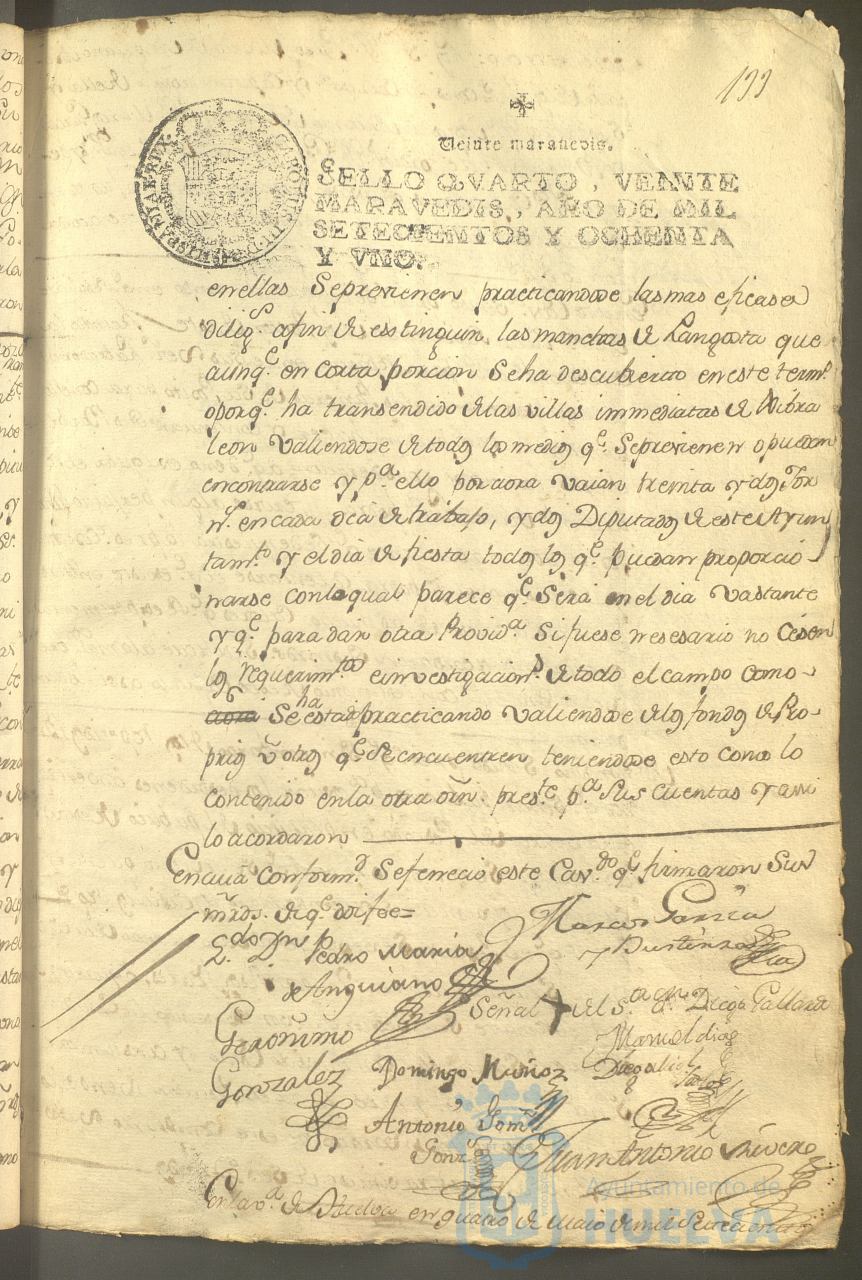 199
Veinte maravedis.
SELLO QVARTO, VEINTE
MARAVEDIS, AÑO DE MIL
SETECIENTOS Y OCHENTA
Y VNO.
CAROLUS III D. G. HISPANIAR. REX
en ellas Seprevienen practicandose las mas eficases
dilig.s afin de esstinguir las manchas de Langosta que
aunq.e en corta porcion Seha descubierto en este term.o
oporq.e ha transendido de las villas immediatas de Gibra
leon valiendose de todos los medios q.e Seprevienen o puedan
encontrarse y p.a ello por aora vaian treinta y dos Jor
n.s en cada dia de trabajo, y dos Diputados de este Ayun
tam.to y el dia de fiesta todos los q.e puedan proporcio-
narse con lo qual parece q.e Será en el dia vastante
y q.e para dar otra Provid.a Si fuese nesesario no Cesen
los requerim.tos e investigacion.s de todo el campo como
aora Se ha estado practicando valiendose de los fondos de Pro-
prios u otros q.e Se encuentren teniendose esto como lo
contenido en la otra orn. pres.te p.a Sus cuentas y assi
lo acordaron
En cuia conform.d Sefenecio este Cav.do q.e firmaron Sus
mrds. de q.e doi fee=
L.do Dn Pedro Maria
de Anguiano
Marcos Garcia
y Bustinza
Señal + del S.r Dn Diego Gallardo
Geronimo
Gonzalez
Domingo Muñoz
Manuel diaz
Antonio Gom.z
Gonz.z
Juan Antonio Rivero
En la v.a de Huelva en quatro de Maio de mil Setecientos
Ayuntamiento de
HUELVA